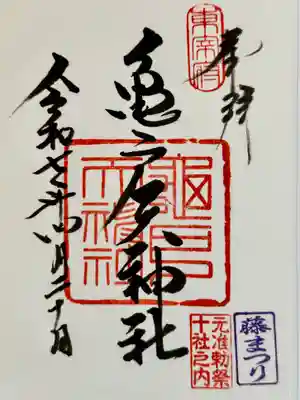 東宰府
奉拝
藤まつり
元准勅祭
十社之内
亀戸天神社
龜戸
天神社
令和七年四月二十日